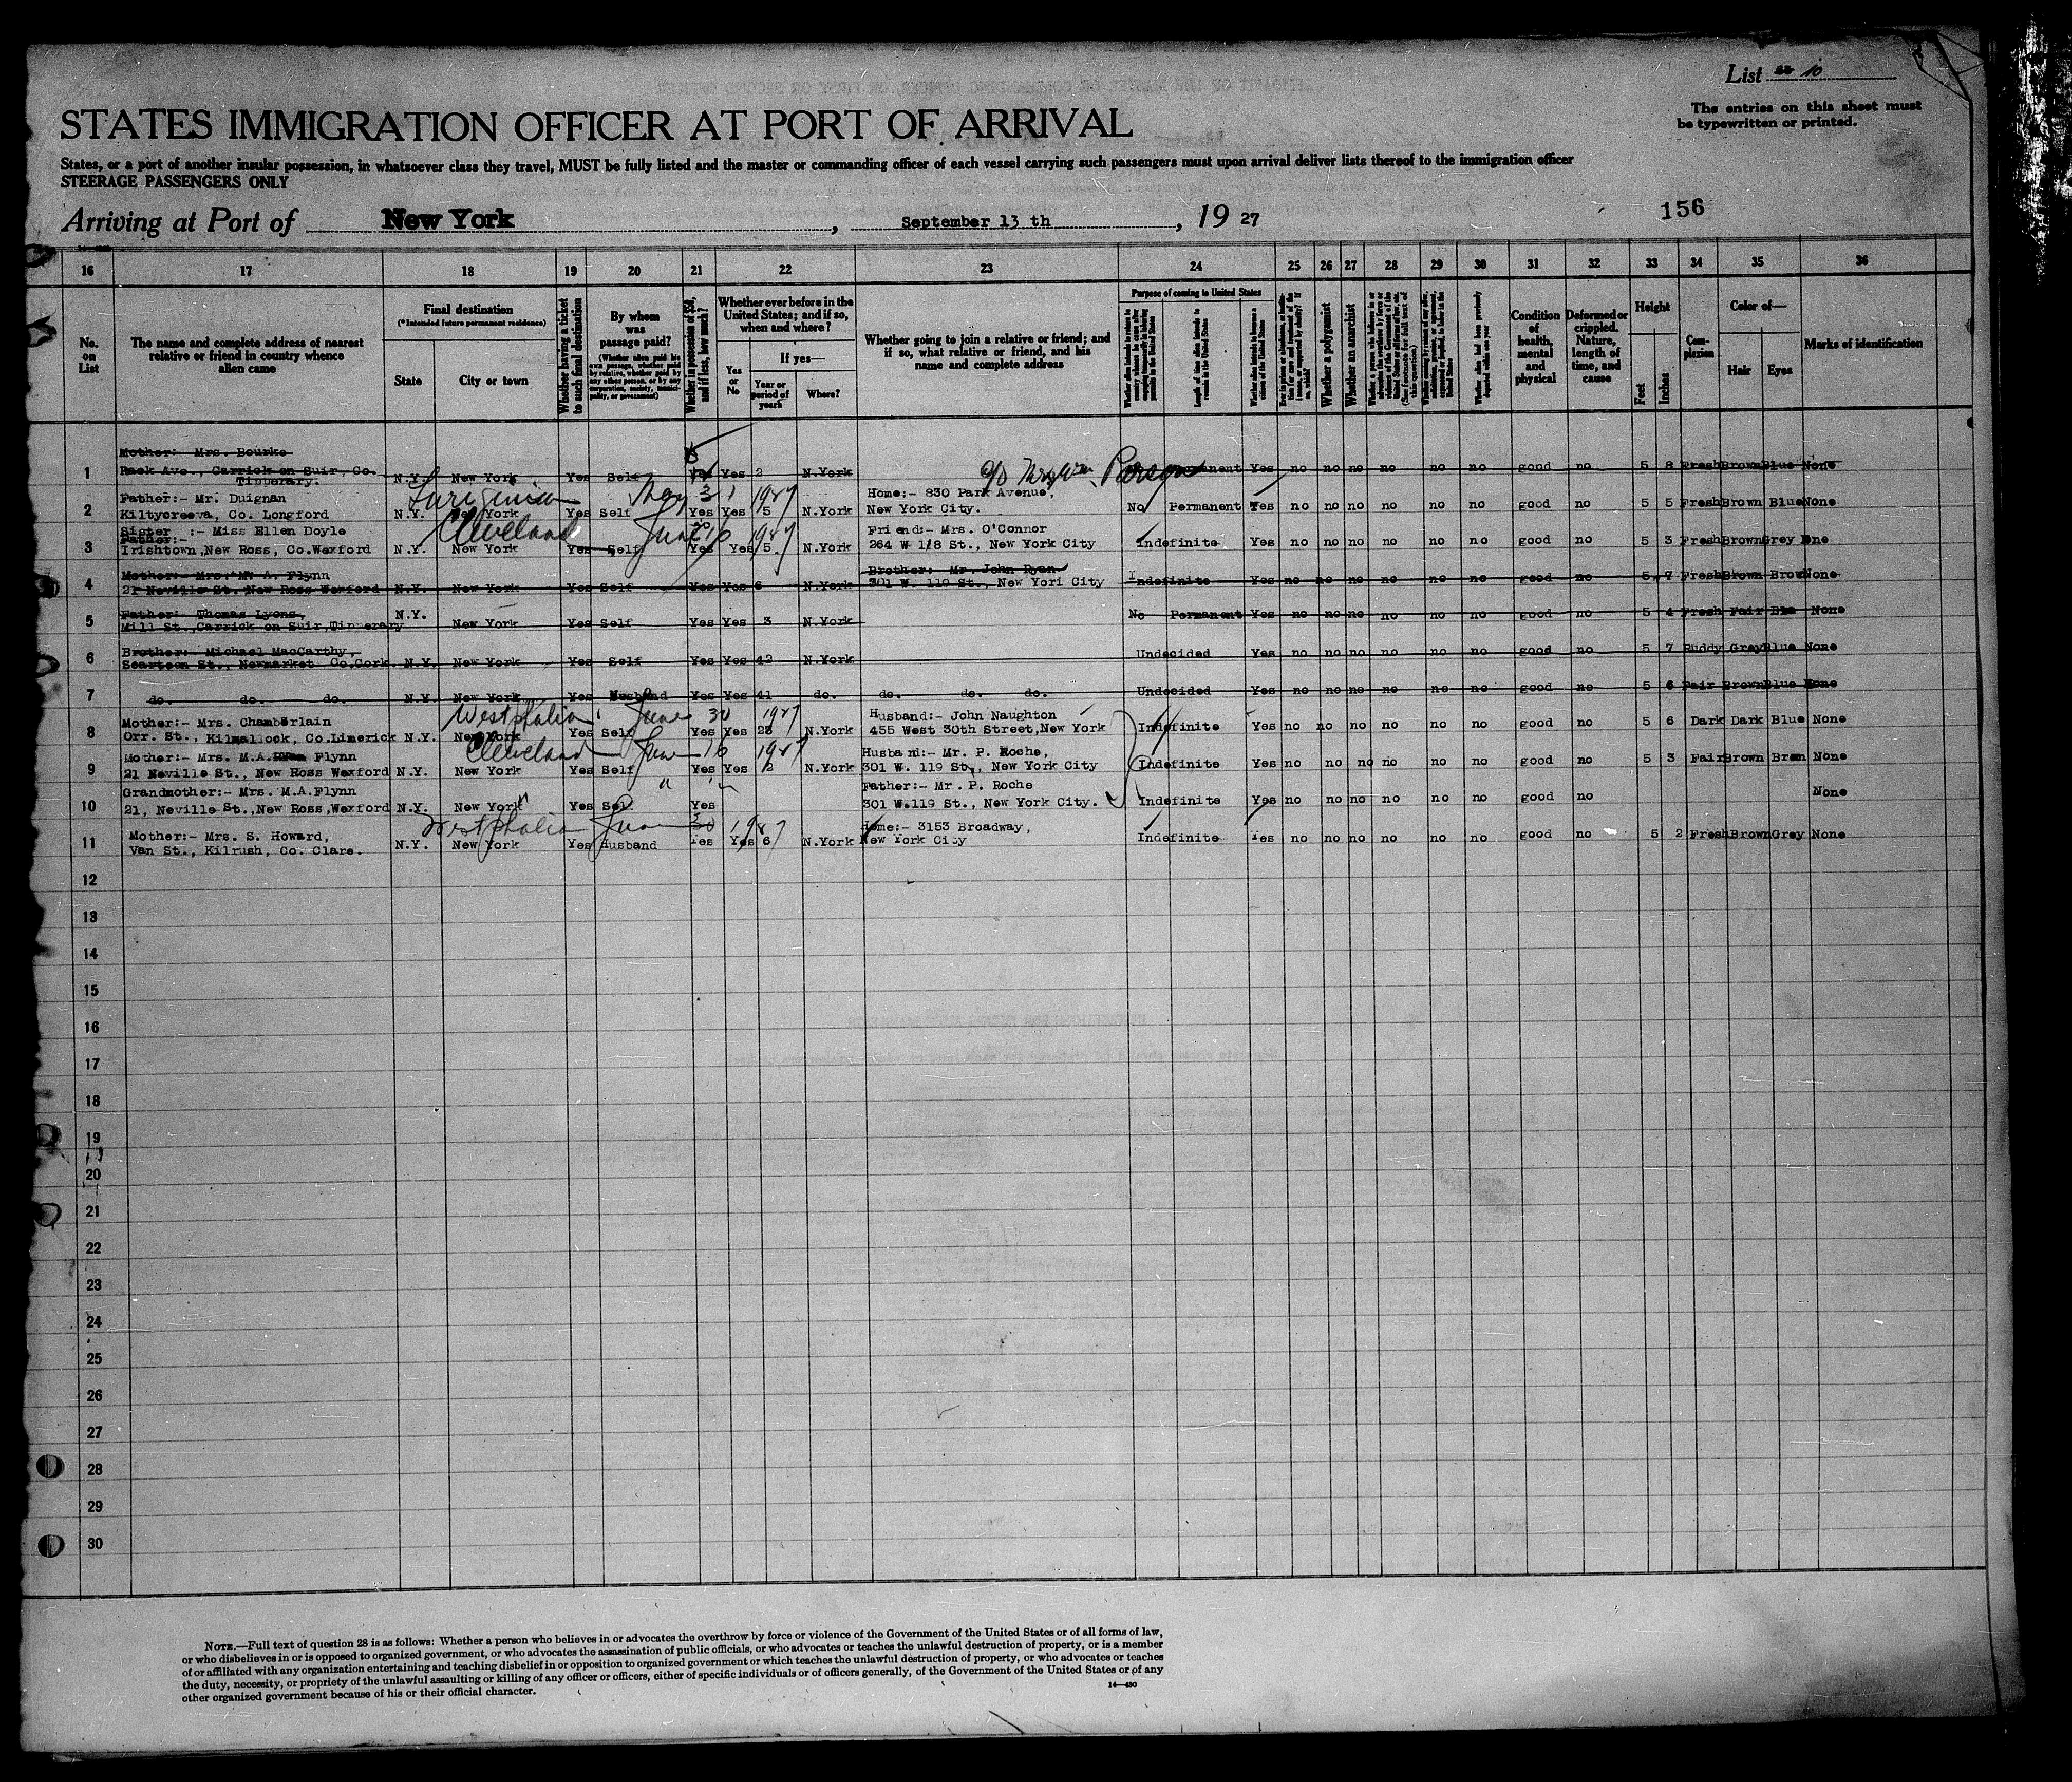 List 10
The entries on this sheet must
be typewritten or printed.
STATES IMMIGRATION OFFICER AT PORT OF ARRIVAL
States, or a port of another insular possession, in whatsoever class they travel, MUST be fully listed and the master or commanding officer of each vessel carrying such passengers must upon arrival deliver lists thereof to the immigration officer
STEERAGE PASSENGERS ONLY
Arriving at Port of New York, September 13 th, 19 27
156
16 17 18 19 20 21 22 23 24 25 26 27 28 29 30 31 32 33 34 35 36
No. on List
The name and complete address of nearest relative or friend in country whence alien came
Final destination
(*Intended future permanent residence)
State
City or town
Whether having a ticket to such final destination
By whom was passage paid?
(Whether alien paid his own passage, whether paid by relative, whether paid by any other person, or by any corporation, society, municipality, or government)
Whether in possession of $50, and if less, how much?
Whether ever before in the United States; and if so, when and where?
Yes or No
If yes—
Year or period of years
Where?
Whether going to join a relative or friend; and if so, what relative or friend, and his name and complete address
Purpose of coming to United States
Length of time alien intends to remain in the United States
Whether alien intends to become a citizen of the United States
Whether a polygamist
Whether an anarchist
Condition of health, mental and physical
Deformed or crippled. Nature, length of time, and cause
Height
Feet
Inches
Com-plexion
Color of—
Hair
Eyes
Marks of identification
Mother: Mrs. Bourke
1 Rack Ave., Carrick on Suir, Co. N.Y. New York Yes Self Yes 2 N.York Permanent Yes no no no no no no good no 5 8 Fresh Brown Blue None
Tipperary.
c/o Mrs Wm. Parson
May 31 1927
Father:- Mr. Duignan Home:- 830 Park Avenue,
2 Kiltycreeva, Co. Longford N.Y. New York Yes Self Yes Yes 5 N.York New York City. No Permanent Yes no no no no no no good no 5 5 Fresh Brown Blue None
Cleveland June 16 1927
Sister :- Miss Ellen Doyle Friend:- Mrs. O'Connor
Father:-
3 Irishtown, New Ross, Co.Wexford N.Y. New York Yes Self Yes Yes 5 N.York 264 W 118 St., New York City Indefinite Yes no no no no no no good no 5 3 Fresh Brown Grey None
Mother: Mrs. M A. Flynn Brother: Mr. John Ryan
4 21 Neville St. New Ross Wexford N.Y. New York Yes Self Yes Yes 6 N.York 301 W. 119 St., New Yori City Indefinite Yes no no no no no no good no 5 7 Fresh Brown Brow None
Father: Thomas Lyons,
5 Mill St., Carrick on Suir, Tipperary N.Y. New York Yes Self Yes Yes 3 N.York No Permanent Yes no no no no no no good no 5 4 Fresh Fair None
Brother: Michael MacCarthy,
6 Scarteen St., Newmarket Co.Cork N.Y. New York Yes Self Yes Yes 42 N.York Undecided Yes no no no no no no good no 5 7 Ruddy Gray Blue None
7 do. do. do. N.Y. New York Yes Husband Yes Yes 41 do. do. do. do. Undecided Yes no no no no no no good no 5 6 Fair Brown Blue None
Westphalia June 30 1927
Mother:- Mrs. Chamberlain Husband:- John Naughton
8 Orr. St., Kilmallock, Co.Limerick N.Y. New York Yes Self Yes Yes 28 N.York 455 West 30th Street, New York Indefinite Yes no no no no no no good no 5 6 Dark Dark Blue None
Cleveland June 16 1927
Mother:- Mrs. M.A. Flynn Husband:- Mr. P. Roche,
9 21 Neville St., New Ross Wexford N.Y. New York Yes Self Yes Yes 2 N.York 301 W. 119 St., New York City Indefinite Yes no no no no no no good no 5 3 Fair Brown Bren None
Grandmother:- Mrs. M.A.Flynn Father:- Mr. P. Roche
10 21, Neville St., New Ross, Wexford N.Y. New York Yes Sel. Yes 301 W.119 St., New York City. Indefinite Yes no no no no no no good no None
Westphalia June 30 1927
Mother:- Mrs. S. Howard, Home:- 3153 Broadway,
11 Van St., Kilrush, Co. Clare. N.Y. New York Yes Husband Yes Yes 6 N.York New York City Indefinite Yes no no no no no no good no 5 2 Fresh Brown Grey None
12
13
14
15
16
17
18
19
20
21
22
23
24
25
26
27
28
29
30
NOTE.—Full text of question 28 is as follows: Whether a person who believes in or advocates the overthrow by force or violence of the Government of the United States or of all forms of law,
or who disbelieves in or is opposed to organized government, or who advocates the assassination of public officials, or who advocates or teaches the unlawful destruction of property, or is a member
of or affiliated with any organization entertaining and teaching disbelief in or opposition to organized government or which teaches the unlawful destruction of property, or who advocates or teaches
the duty, necessity, or propriety of the unlawful assaulting or killing of any officer or officers, either of specific individuals or of officers generally, of the Government of the United States or of any
other organized government because of his or their official character.
14—430